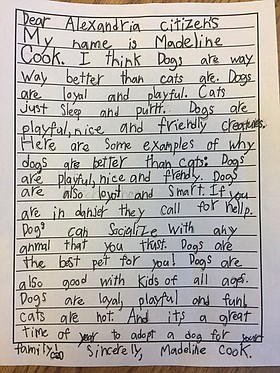 Dear Alexandria citizens
My name is Madeline
Cook. I think Dogs are way
way better than cats are. Dogs
are loyal and playful. Cats
just sleep and purr. Dogs are
playful, nice and friendly creatures.
Here are Some examples of why
dogs are better than Cats: Dogs
are playful, nice and frendly. Dogs
are also loyol and Smart. If you
are in danger they call for help.
Dogs can Socialize with any
anmal that you trust. Dogs are
the best pet for you! Dogs are
also good with kids of all ages.
Dogs are loyal, playful and fun!
cats are not. And it's a great
time of year to adopt a dog for your
family! Sincerely, Madeline Cook.